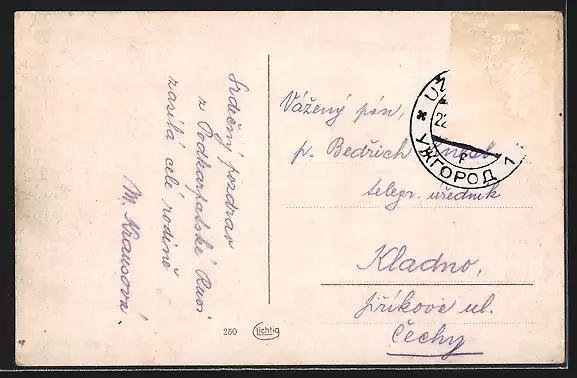 Srdečný pozdrav
z Podkarpatské Rusi
zasílá celé rodině
M. Krausová.
Vážený pán,
p. Bedřich
telegr. úředník
Kladno,
Jiříkova ul.
Čechy
УЖГОРОД 1
250 Lichtig